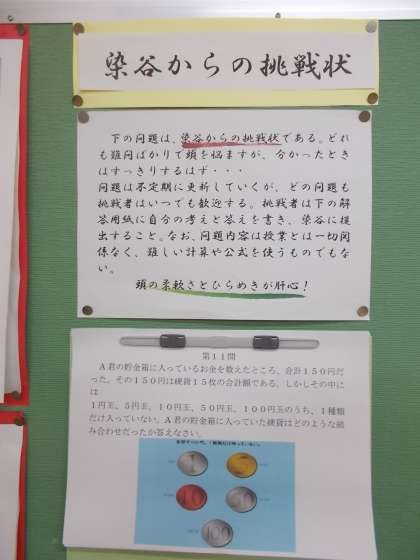 染谷からの挑戦状
下の問題は、染谷からの挑戦状である。どれ
も難問ばかりで頭を悩ますが、分かったとき
はすっきりするはず・・・
問題は不定期に更新していくが、どの問題も
挑戦者はいつでも歓迎する。挑戦者は下の解
答用紙に自分の考えと答えを書き、染谷に提
出すること。なお、問題内容は授業とは一切関
係なく、難しい計算や公式を使うものでもな
い。
頭の柔軟さとひらめきが肝心！
第11問
A君の貯金箱に入っているお金を数えたところ、合計150円だ
った。その150円は硬貨15枚の合計額である。しかしその中に
は
1円玉、5円玉、10円玉、50円玉、100円玉のうち、1種類
だけ入っていない。A君の貯金箱に入っていた硬貨はどのような組
み合わせだったか答えなさい。
1
5
10
50
100